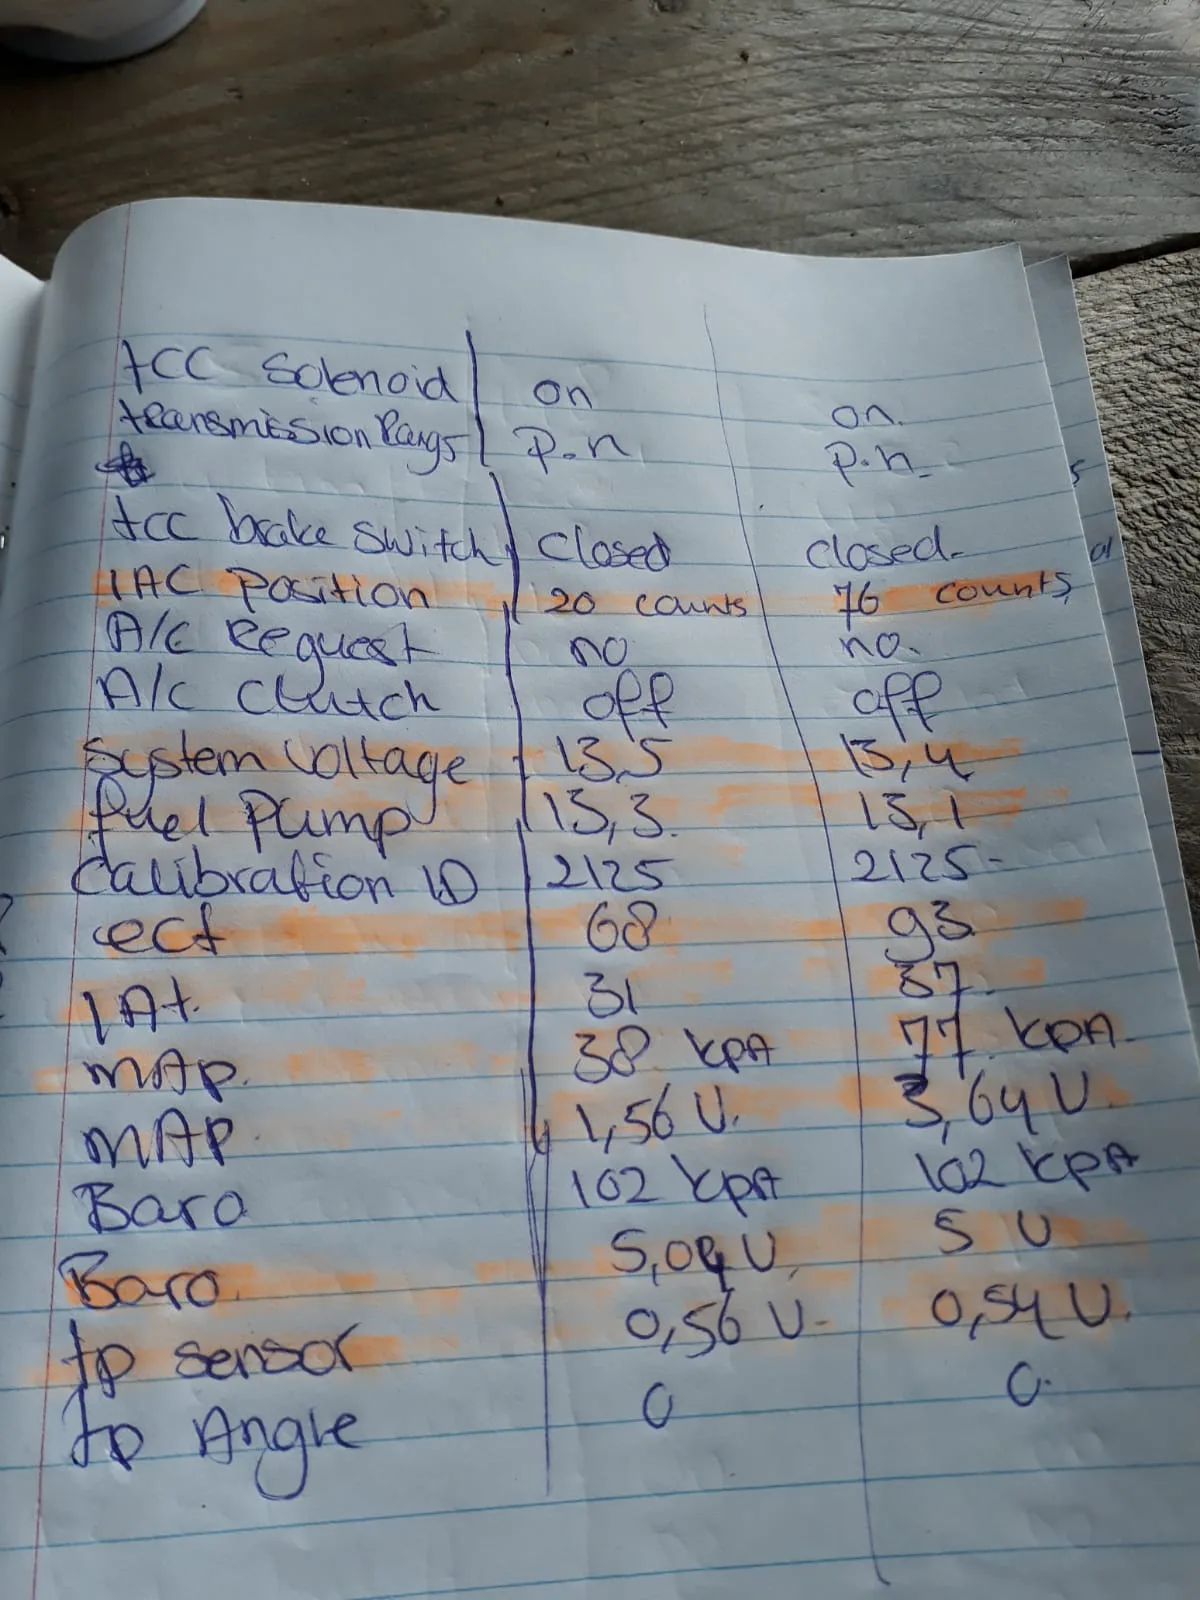 tCC Solenoid on on.
transmission Rangs P-n P.n-
tcc brake switch closed closed-
IAC Position 20 counts 76 counts
A/C Request no no.
A/C Clutch off off
System voltage 13,5 13,4
fuel Pump 13,3. 13,1
Calibration ID 2125 2125-
ect 68 93
IAt. 31 37.
MAP. 38 kpA 77. kpA-
MAP. 1,56 V. 3,64 V.
Baro 102 kpA 102 kpA
Baro. 5,04 V, 5 V
tp sensor 0,56 V- 0,54 V.
tp Angle 0 0.